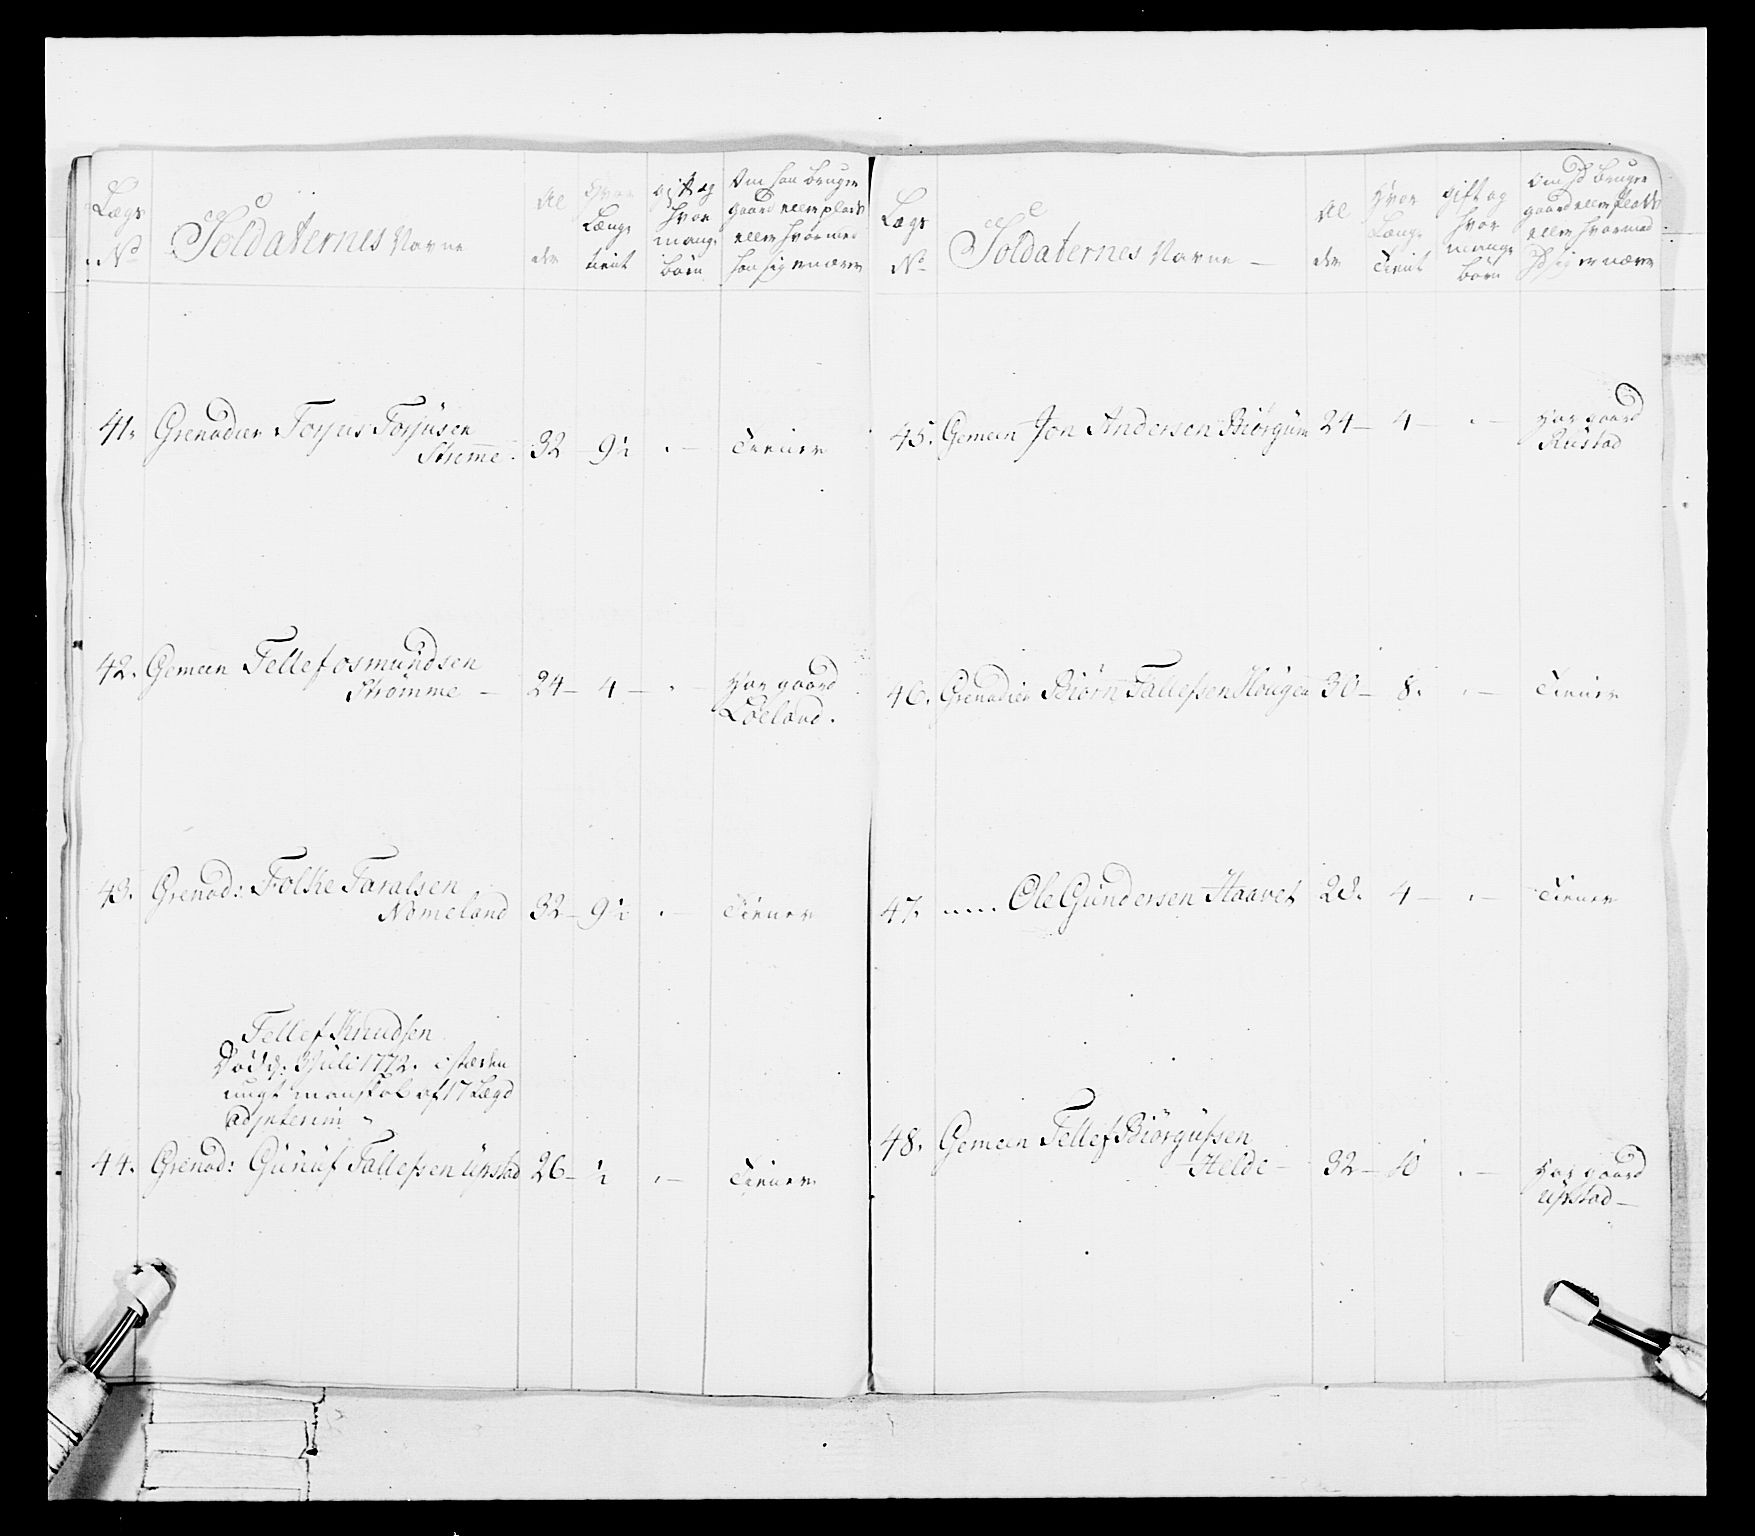 Lægs No
Soldaternes Navne
Al der
Hvor Længe tient
gift og hvor mange børn
Om han bruger gaard eller plads eller hvormed han sig ernærer
41. Grenadeer Torjus Torjusen
Strømme. 32 9½ . — Tiener
42. Gemeen Tellef osmundsen
Strømme — 24 — 4 — . — Har gaard
Løeland.
43. Grenad: Folke Taralsen
Nomeland 32 — 9½ . — Tiener
Tellef Knudsen
Død d: 3 Juli 1772. i stæden
ungt manskab af 17 Lægd
ad interim
44. Grenad: Gunuf Tallefsen Upstad 26 — ½ . — Tiener
Lægs No
Soldaternes Navne —
Al der
Hvor Længe Tient
gift og hvor mange børn
Om Hd bruger gaard eller Plads eller hvormed Hd sig ernærer
45. Gemeen Jon Andersen Biørgum 24 — 4 — . — Har gaard
Rustad
46. Grenadier Biørn Tallefsen Hougen 30 — 8. . — Tiener
47. ..... Ole Gundersen Haavet 28. 4 — . — Tiener
48. Gemeen Tellef Biørgufsen
Helde — 32 — 10 . — Har gaard
Upstad —